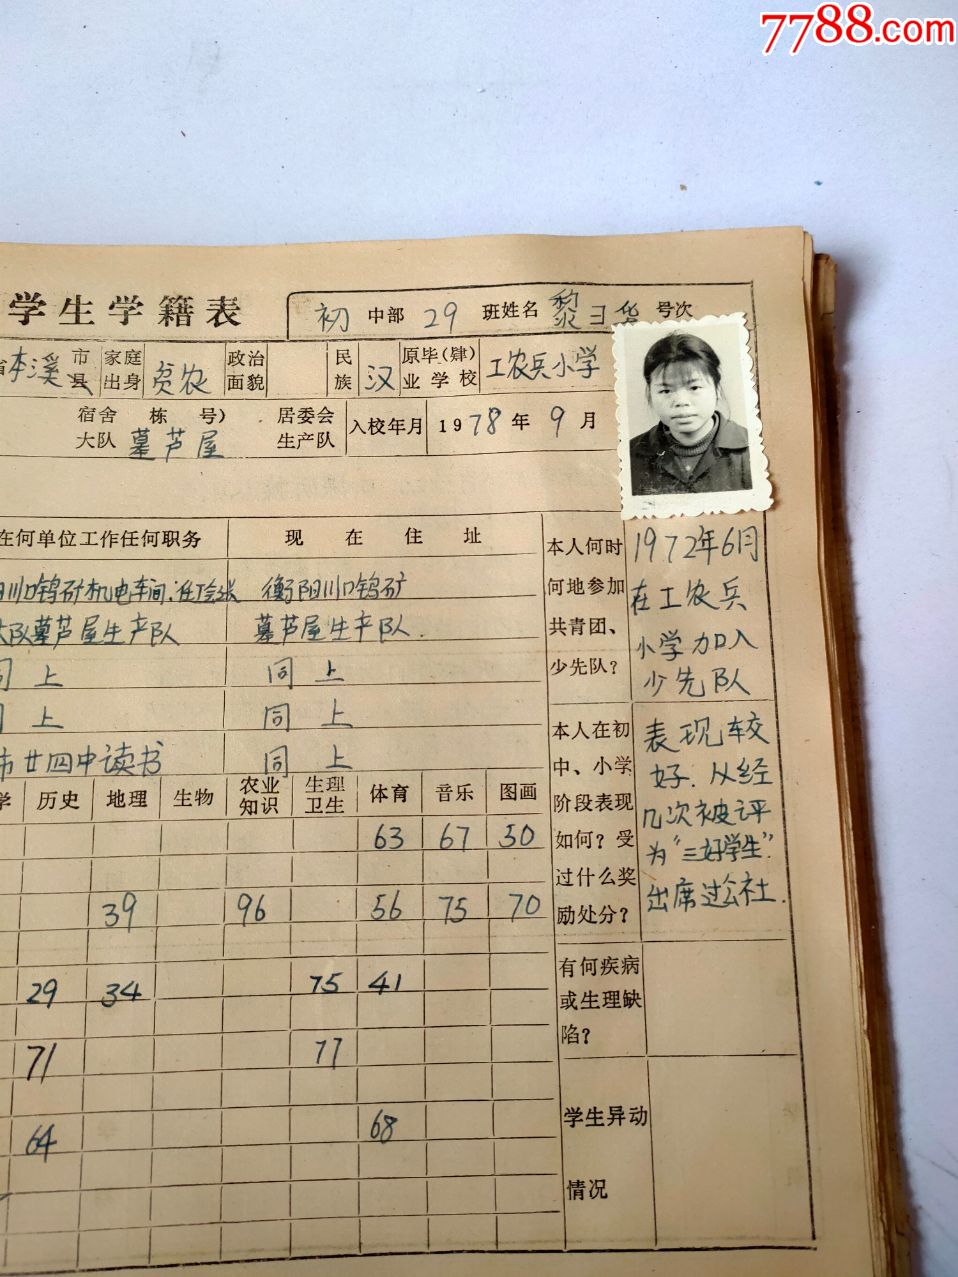 7788.com
学生学籍表
初 中部 29 班姓名 黎 号次
本溪 市县 家庭出身 贫农 政治面貌 民族 汉 原毕(肄)业学校 工农兵小学
宿舍 栋 号) 居委会
大队 芦屋 生产队 入校年月 1978年 9月
在何单位工作任何职务 现在住址
川口钨矿机电车间 衡阳川口钨矿
大队 芦屋生产队 芦屋生产队.
同上 同上
同上 同上
市廿四中读书 同上
本人何时何地参加共青团、少先队?
1972年6月
在工农兵
小学加入
少先队
本人在初中、小学阶段表现如何?受过什么奖励处分?
表现较
好.从经
几次被评
为“三好学生”.
出席过公社.
学 历史 地理 生物 农业知识 生理卫生 体育 音乐 图画
63 67 50
39 96 56 75 70
29 34 75 41
71 77
64 68
有何疾病
或生理缺
陷?
学生异动
情况